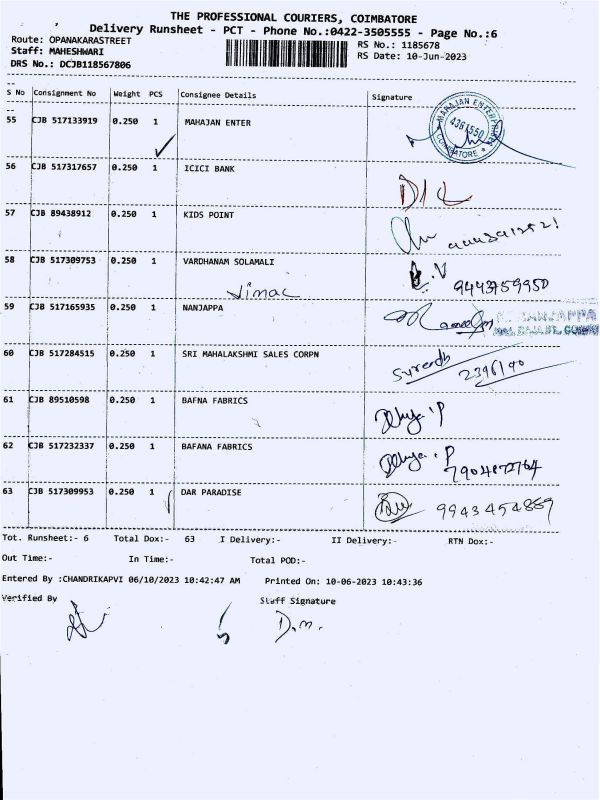 THE PROFESSIONAL COURIERS, COIMBATORE
Delivery Runsheet - PCT - Phone No.:0422-3505555 - Page No.:6
Route: OPANAKARASTREET
RS No.: 1185678
Staff: MAHESHWARI
RS Date: 10-Jun-2023
DRS No.: DCJB118567806
S No Consignment No Weight PCS Consignee Details Signature
55 CJB 517133919 0.250 1 MAHAJAN ENTER
MAHAJAN ENTERPRISES
4361550
COIMBATORE
56 CJB 517317657 0.250 1 ICICI BANK
57 CJB 89438912 0.250 1 KIDS POINT
58 CJB 517309753 0.250 1 VARDHANAM SOLAMALI
Vimac
9443759950
59 CJB 517165935 0.250 1 NANJAPPA
NANJAPPA
60 CJB 517284515 0.250 1 SRI MAHALAKSHMI SALES CORPN
Suresh
2396190
61 CJB 89510598 0.250 1 BAFNA FABRICS
62 CJB 517232337 0.250 1 BAFANA FABRICS
63 CJB 517309953 0.250 1 DAR PARADISE
9943454869
Tot. Runsheet:- 6 Total Dox:- 63 I Delivery:- II Delivery:- RTN Dox:-
Out Time:- In Time:- Total POD:-
Entered By :CHANDRIKAPVI 06/10/2023 10:42:47 AM Printed On: 10-06-2023 10:43:36
Verified By Staff Signature
D.m.